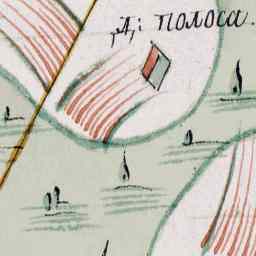 „Д„ і полоса.